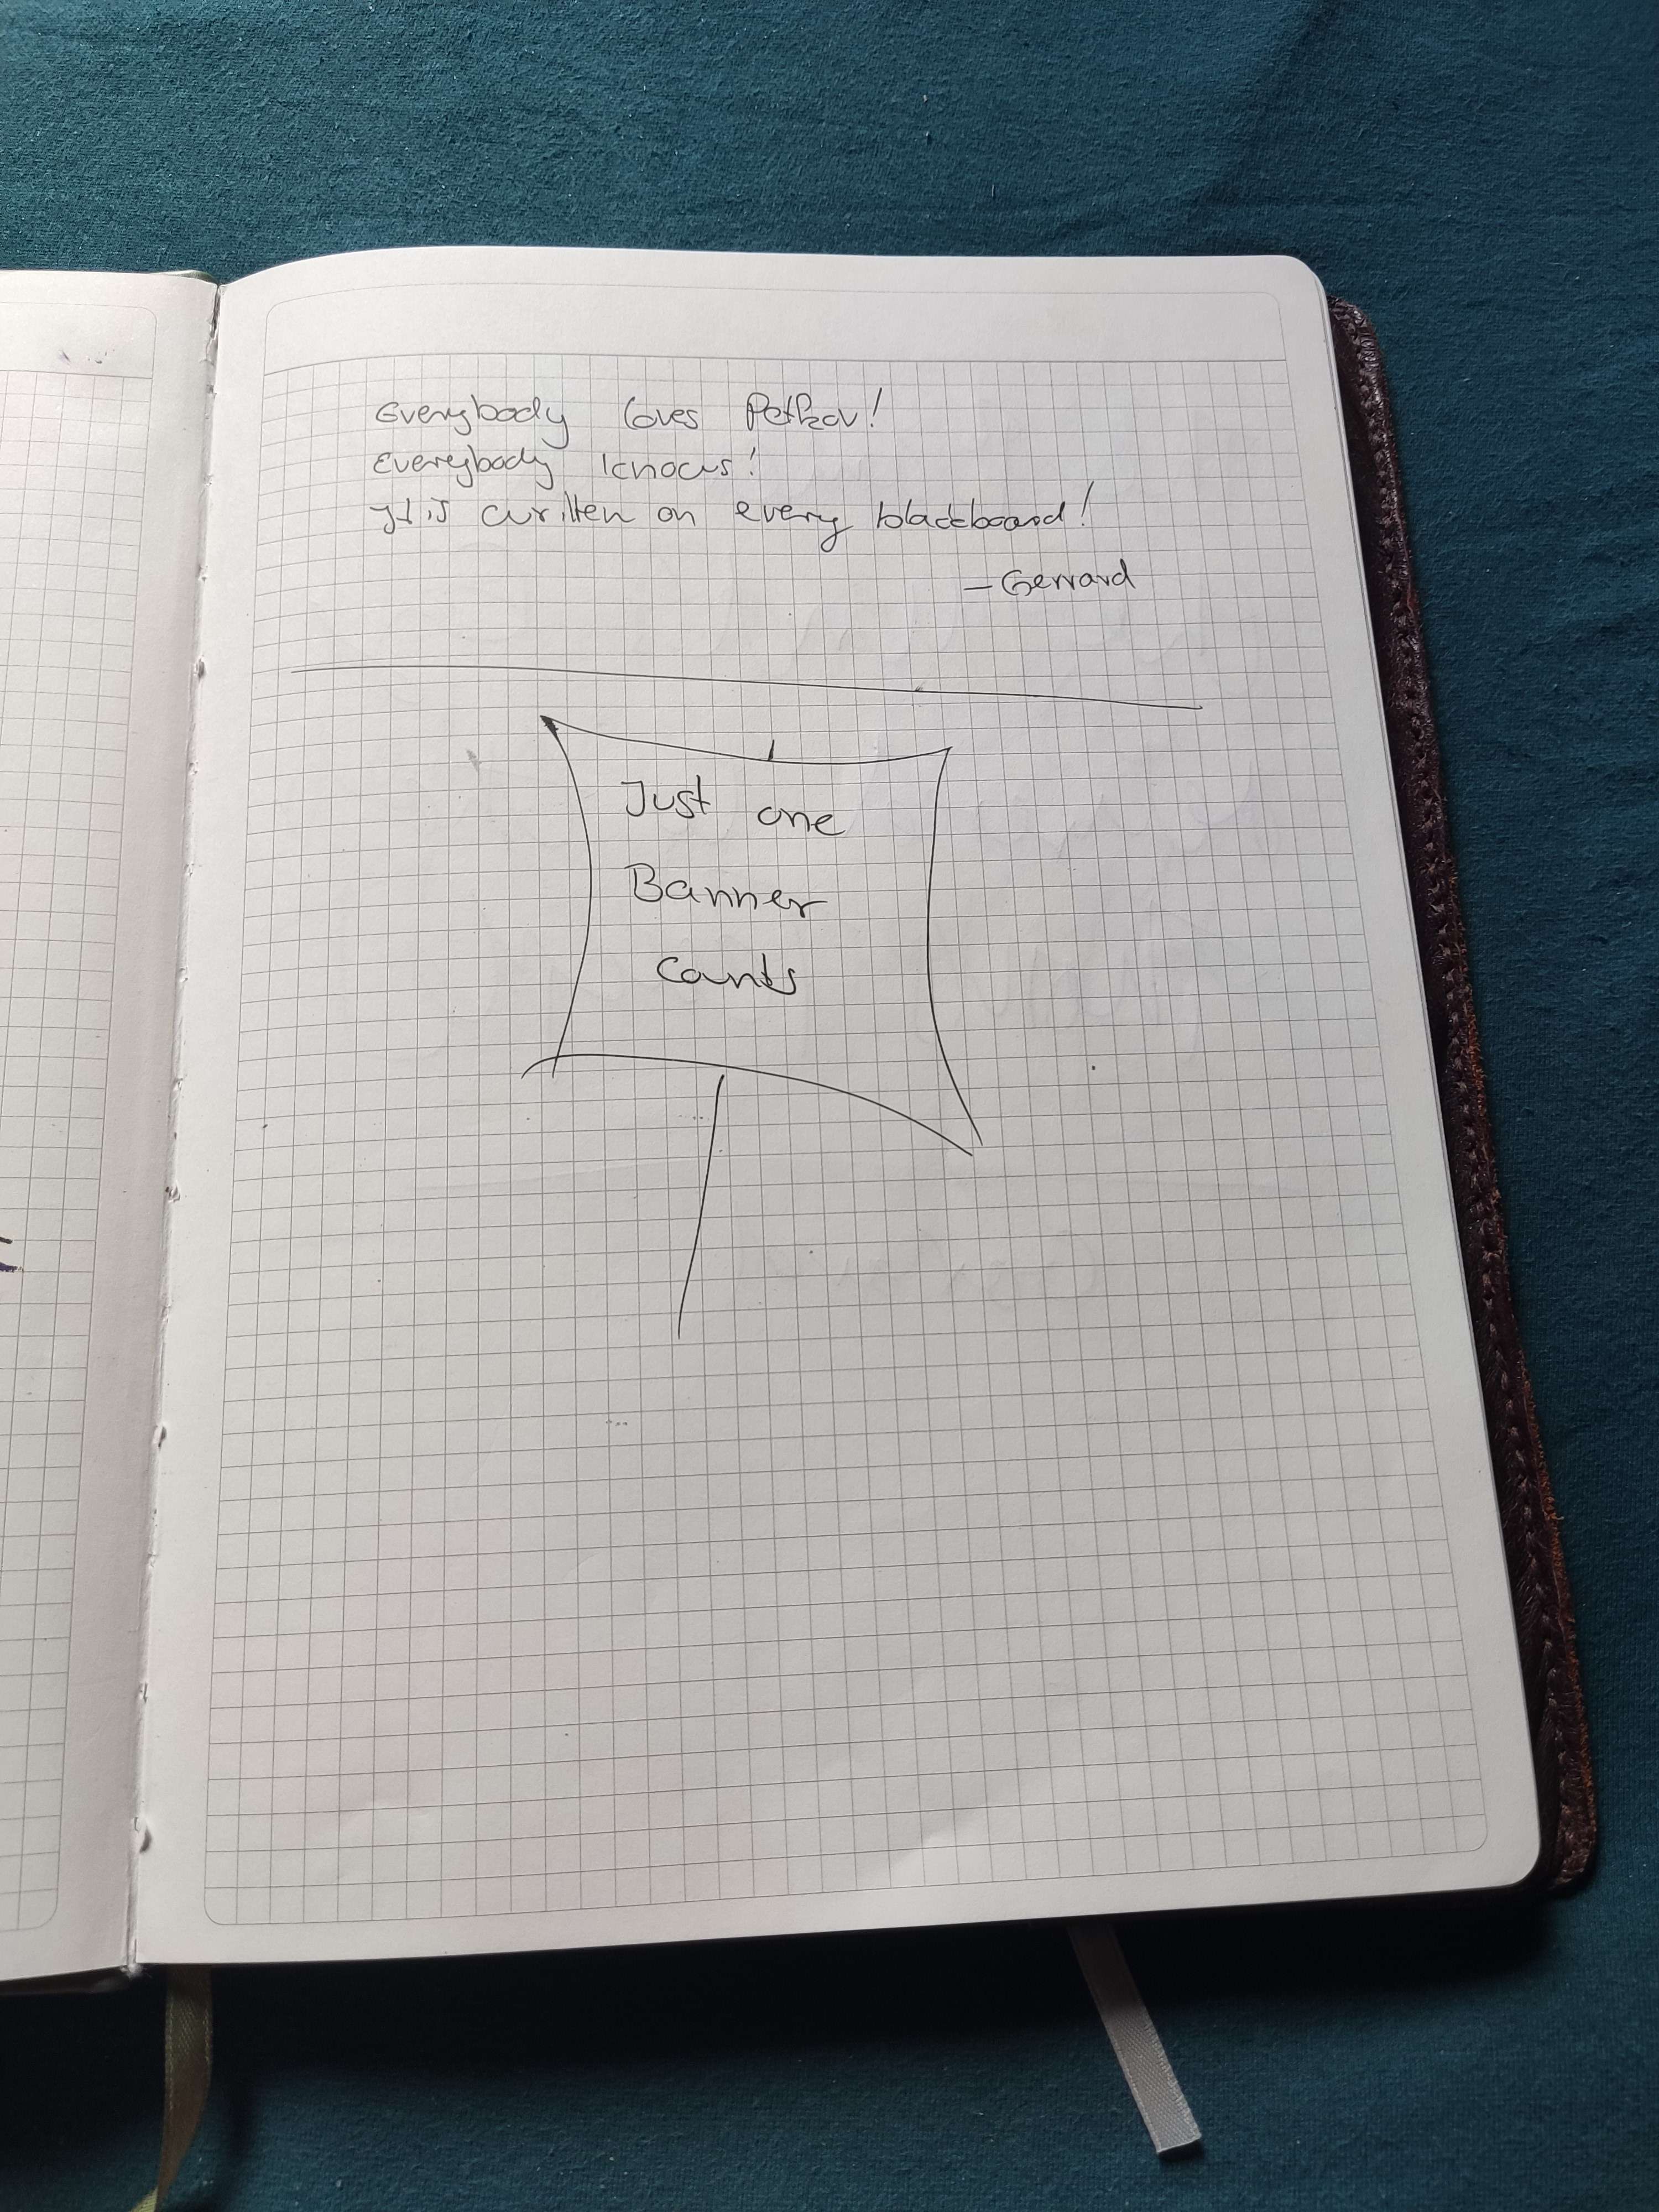 Everybody loves Petkov!
Everybody knows!
It is written on every blackboard!
– Gerrard
Just one
Banner
counts